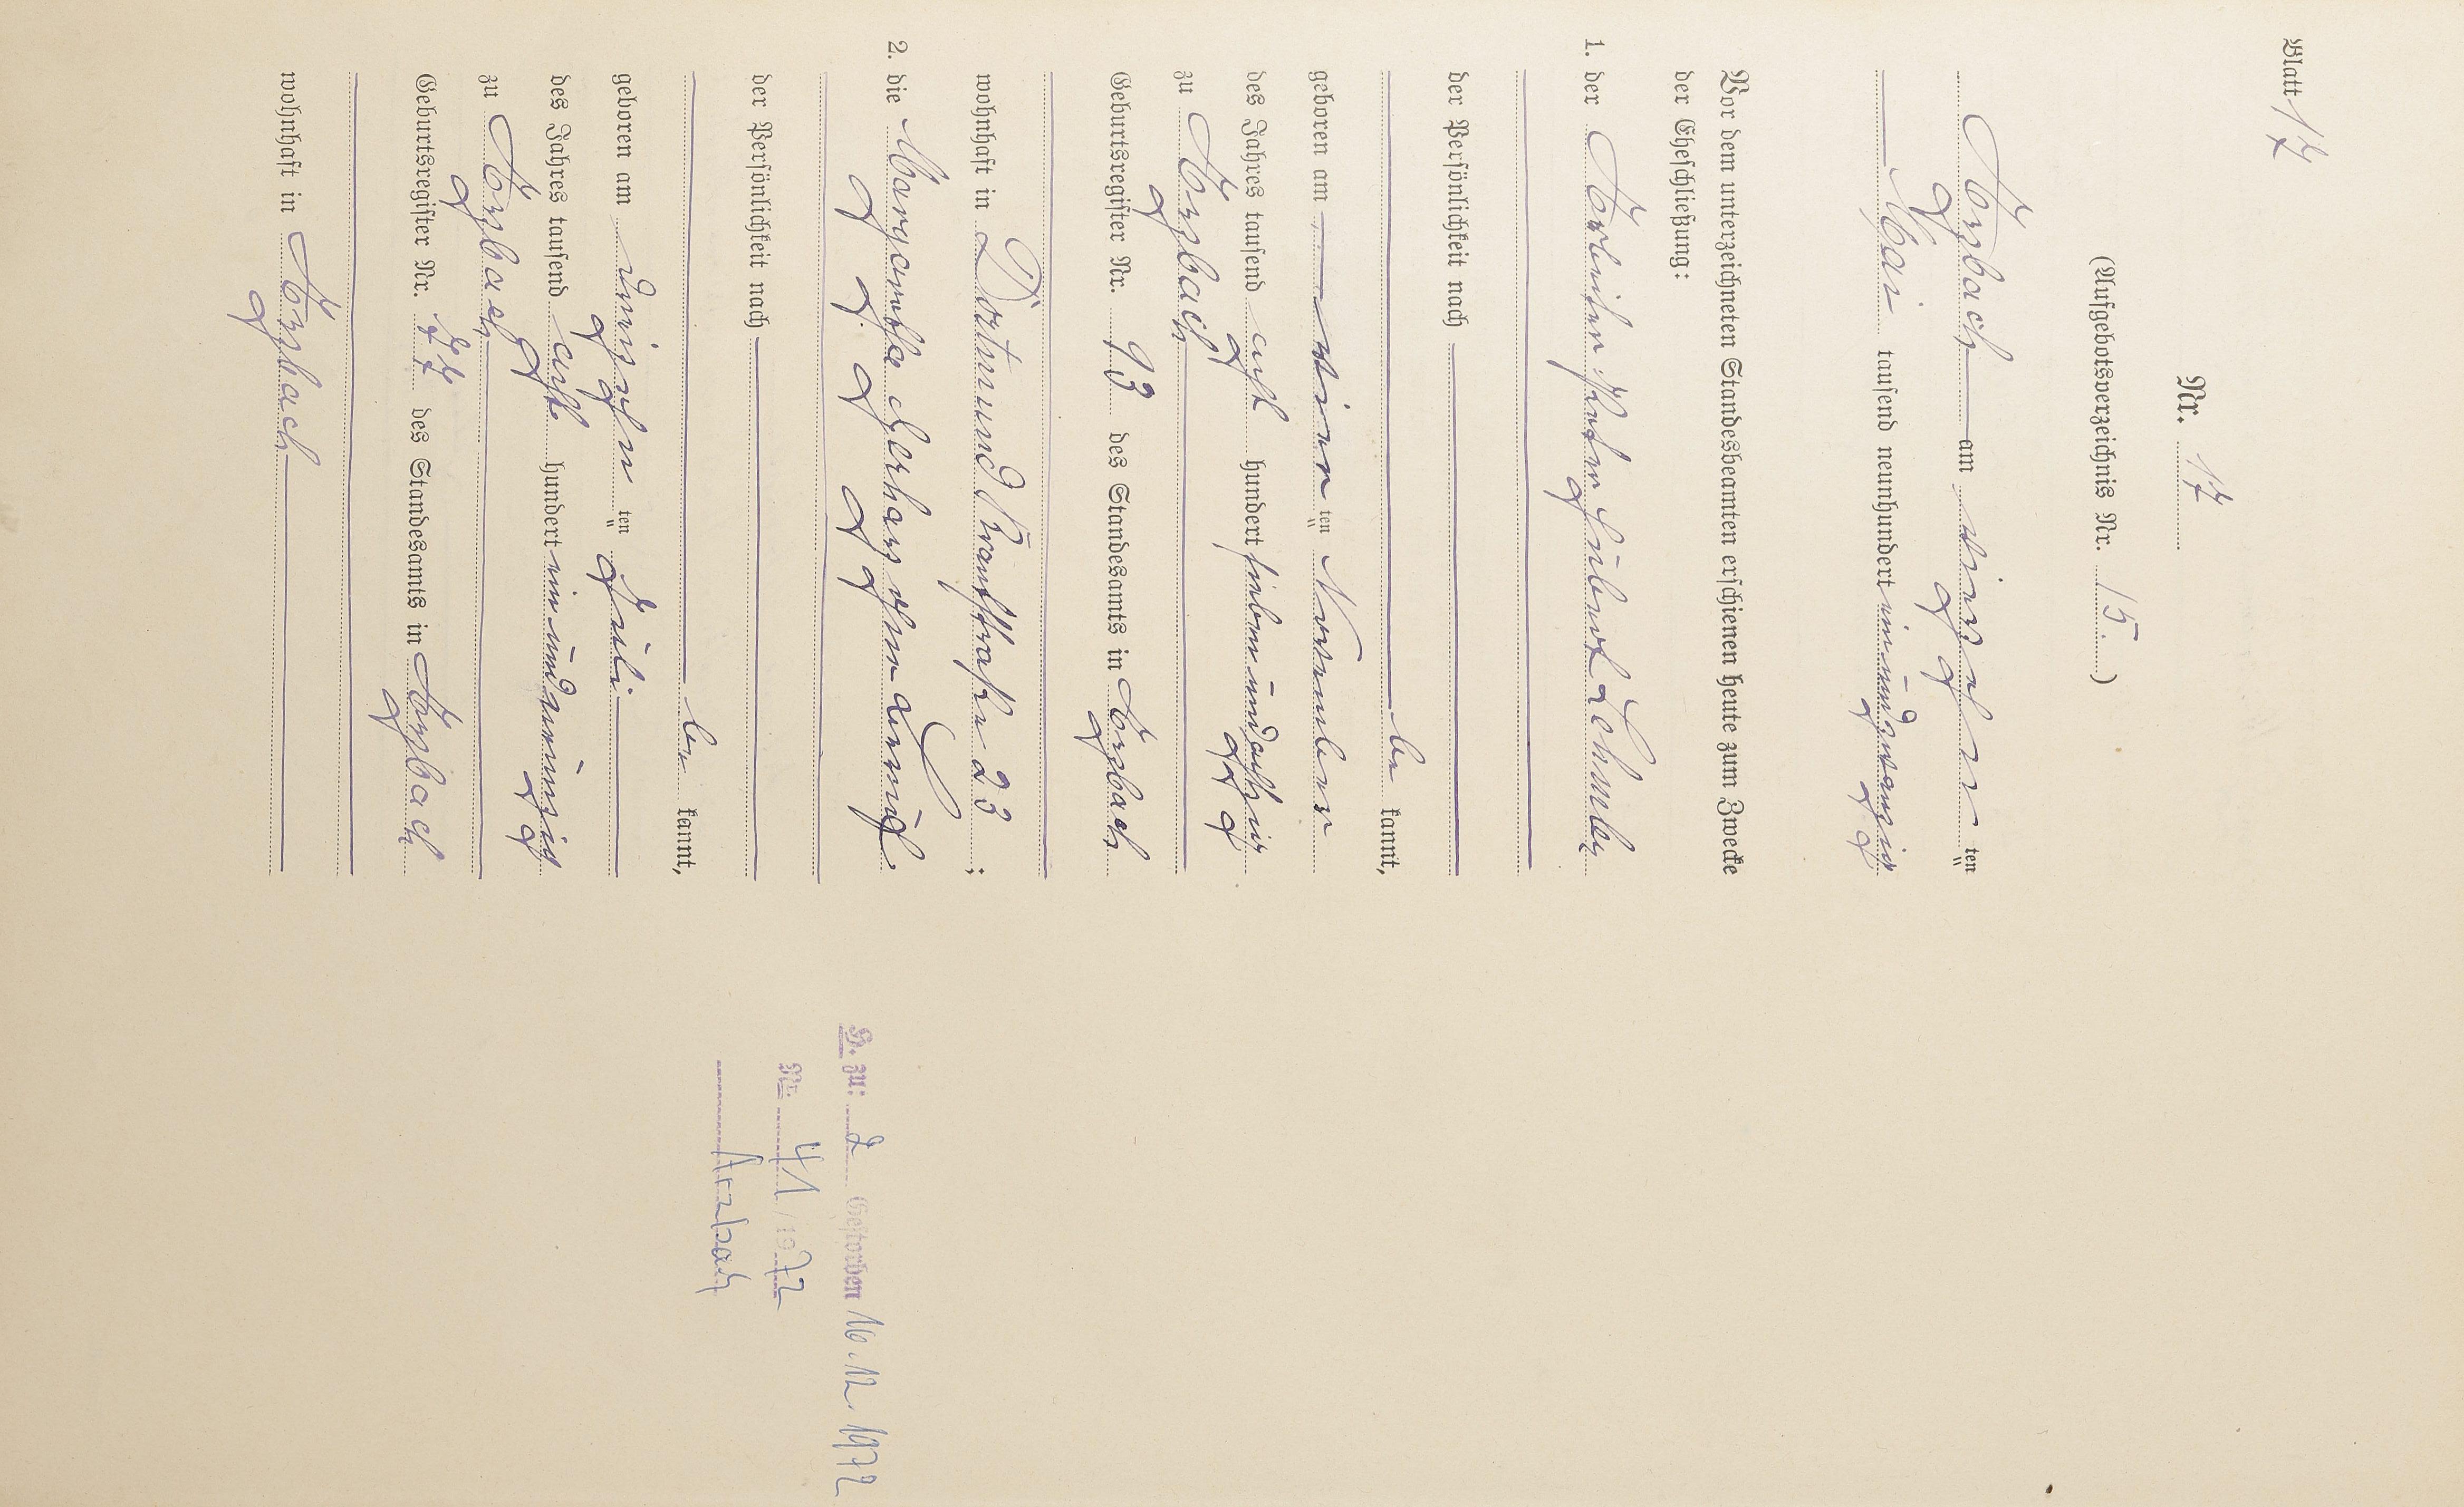 Blatt 17
Nr. 17
(Aufgebotsverzeichnis Nr. 15.)
Arzbach am vierzehnten
Mai tausend neunhundert einundzwanzig
Vor dem unterzeichneten Standesbeamten erschienen heute zum Zwecke
der Eheschließung:
1. der Arbeiter Peter Hubert Lehmler
der Persönlichkeit nach
be kannt,
geboren am vierten November
des Jahres tausend acht hundert siebenundachtzig
zu Arzbach
Geburtsregister Nr. 93 des Standesamts in Arzbach
wohnhaft in Dortmund
 23 ;
2. die Margaretha Gerharz ohne Beruf,
der Persönlichkeit nach
be kannt,
geboren am dreizehnten Juli
des Jahres tausend acht hundert einundneunzig
zu Arzbach
Geburtsregister Nr. 77 des Standesamts in Arzbach
wohnhaft in Arzbach
H. zu: 2 Gestorben 16.12.1972
Nr. 41/1972
Arzbach